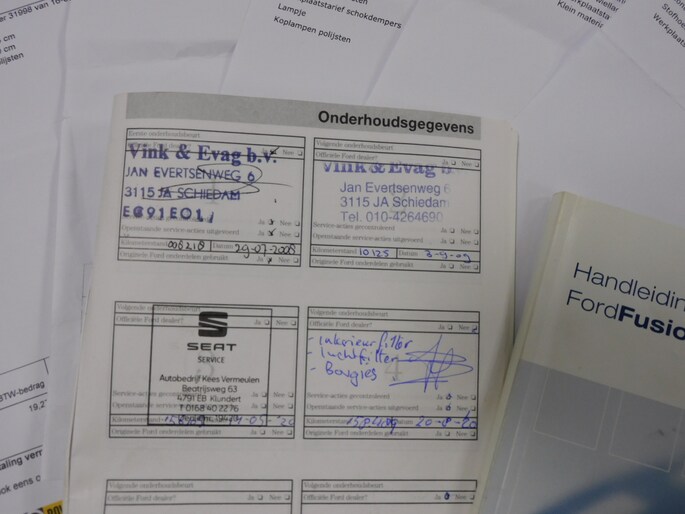 31998
cm
cm
lijsten
plaatstarief schokdempers
Lampje
Koplampen polijsten
Klein materi
Werkplaatsta
Stofhoe
Werkplaats
BTW-bedrag
19,2
aling verm
ook eens o
Onderhoudsgegevens
Eerste onderhoudsbeurt
Officiële Ford dealer? Ja Nee
Vink & Evag b.v.
JAN EVERTSENWEG 6
3115 JA SCHIEDAM
Ja Nee
Openstaande service-acties uitgevoerd Ja Nee
Kilometerstand Datum
Originele Ford onderdelen gebruikt Ja Nee
Volgende onderhoudsbeurt
Officiële Ford dealer? Ja Nee
Vink & Evag b
Jan Evertsenweg 6
3115 JA Schiedam
Tel. 010-4264690
Service-acties gecontroleerd Ja Nee
Openstaande service-acties uitgevoerd Ja Nee
Kilometerstand 10125 Datum
Originele Ford onderdelen gebruikt Ja Nee
Volgende onderhoudsbeurt
Officiële Ford dealer? Ja Nee
SEAT
SERVICE
Autobedrijf Kees Vermeulen
Beatrijsweg 63
4791 EB Klundert
T 0168 40 22 76
Service-acties gecontroleerd Ja Nee
Openstaande service-acties uitgevoerd Ja Nee
Kilometerstand
Originele Ford onderdelen gebruikt Ja Nee
Volgende onderhoudsbeurt
Officiële Ford dealer? Ja Nee
- Interieurfilter
- Luchtfilter
- Bougies
4
Service-acties gecontroleerd Ja Nee
Openstaande service-acties uitgevoerd Ja Nee
Kilometerstand Datum
Originele Ford onderdelen gebruikt Ja Nee
Volgende onderhoudsbeurt
Officiële Ford dealer? Ja Nee
Volgende onderhoudsbeurt
Officiële Ford dealer? Ja Nee
Handleidin
FordFusio